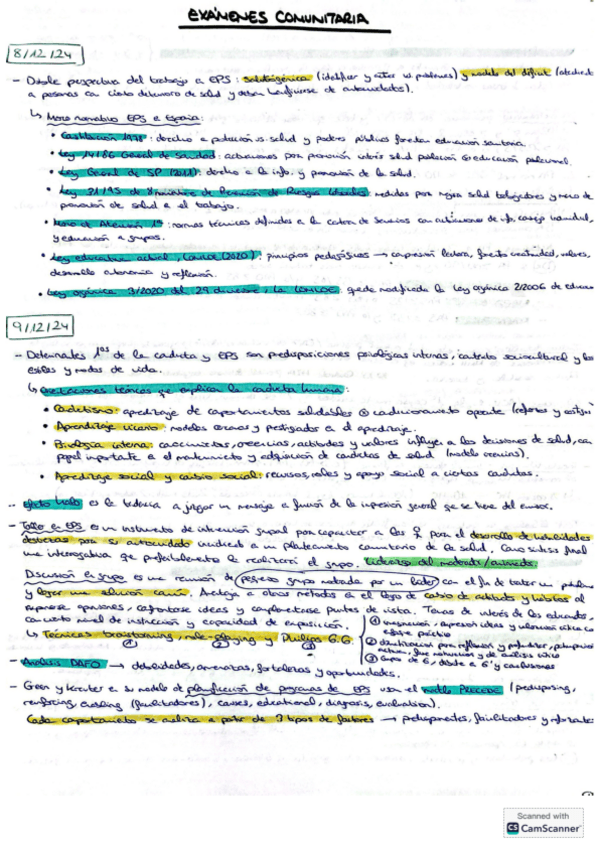 EXÁMENES COMUNITARIA
8/12/24
- Doble perspectiva del trabajo en EPS: salutogénica (identificar y evitar los problemas) y modelo del déficit (atender
a personas con cierto deterioro de salud y deben beneficiarse de autocuidados).
↳ Marco normativo EPS en España:
• Constitución 1978: derecho a protección salud y poderes públicos fomentan educación sanitaria.
• Ley 14/86 General de Sanidad: actuaciones para promoción interés salud población educación poblacional.
• Ley General de SP (2011): derecho a la info. y promoción de la salud.
• Ley 31/95 de 8 noviembre de Prevención de Riesgos Laborales: medidas para mejorar salud trabajadores y
promoción de salud en el trabajo.
• Atención 1ª: normas técnicas definidas en la cartera de servicios con de info, consejo individual,
y educación a grupos.
• Ley educativa actual, LOMLOE (2020): principios pedagógicos → comprensión lectora, fomento creatividad, valores,
desarrollo autonomía y reflexión.
• Ley orgánica 3/2020 del 29 diciembre, la LOMLOE: queda modificada la Ley orgánica 2/2006 de educación
9/12/24
- Determinantes 1os de la conducta y EPS son predisposiciones psicológicas internas, contexto sociocultural y los
estilos y modos de vida.
↳ Orientaciones teóricas que explican la conducta humana:
• Conductismo: aprendizaje de comportamientos saludables condicionamiento operante (refuerzos y castigos)
• Aprendizaje vicario: modelos cercanos y prestigiados en el aprendizaje.
• interna: conocimientos, creencias, actitudes y valores influyen en las decisiones de salud, con
papel importante en el mantenimiento y adquisición de conductas de salud (modelo creencias).
• Aprendizaje social y cambio social: recursos, roles y apoyo social a ciertas conductas.
- Efecto halo es la tendencia a juzgar un mensaje en función de la impresión general que se tiene del emisor.
- Taller en EPS es un instrumento de intervención grupal para capacitar a las para el desarrollo de habilidades
destrezas para su autocuidado mediante un planteamiento comunitario de la salud. Como síntesis final
una interrogativa que preferiblemente la realizará el grupo. Liderazgo del moderador/animador.
Discusión en grupo es una reunión de pequeño grupo moderada por un líder con el fin de tratar un problema
y lograr una solución común. Aventaja a otros métodos en el logro de cambio de actitudes y hábitos al
expresarse opiniones, confrontarse ideas y complementarse puntos de vista. Temas de interés de los educandos,
concreto nivel de instrucción y capacidad de exposición.
↳ Técnicas: brainstorming, role-playing y Philips 6.6.
① ② ③
① imaginación, expresión ideas y valoración crítica
② dramatización para reflexión y profundizar,
③ Grupos de 6, desde a 6' y conclusiones
- Análisis DAFO → debilidades, amenazas, fortalezas y oportunidades.
- Green y Kreuter en su modelo de planificación de programas de EPS usan el modelo PRECEDE (predisposing,
reinforcing, enabling (facilitadores), causes, educational, diagnosis, evaluation).
Cada comportamiento se analiza a partir de 3 tipos de factores → predisponentes, facilitadores y reforzantes
Scanned with
CS CamScanner